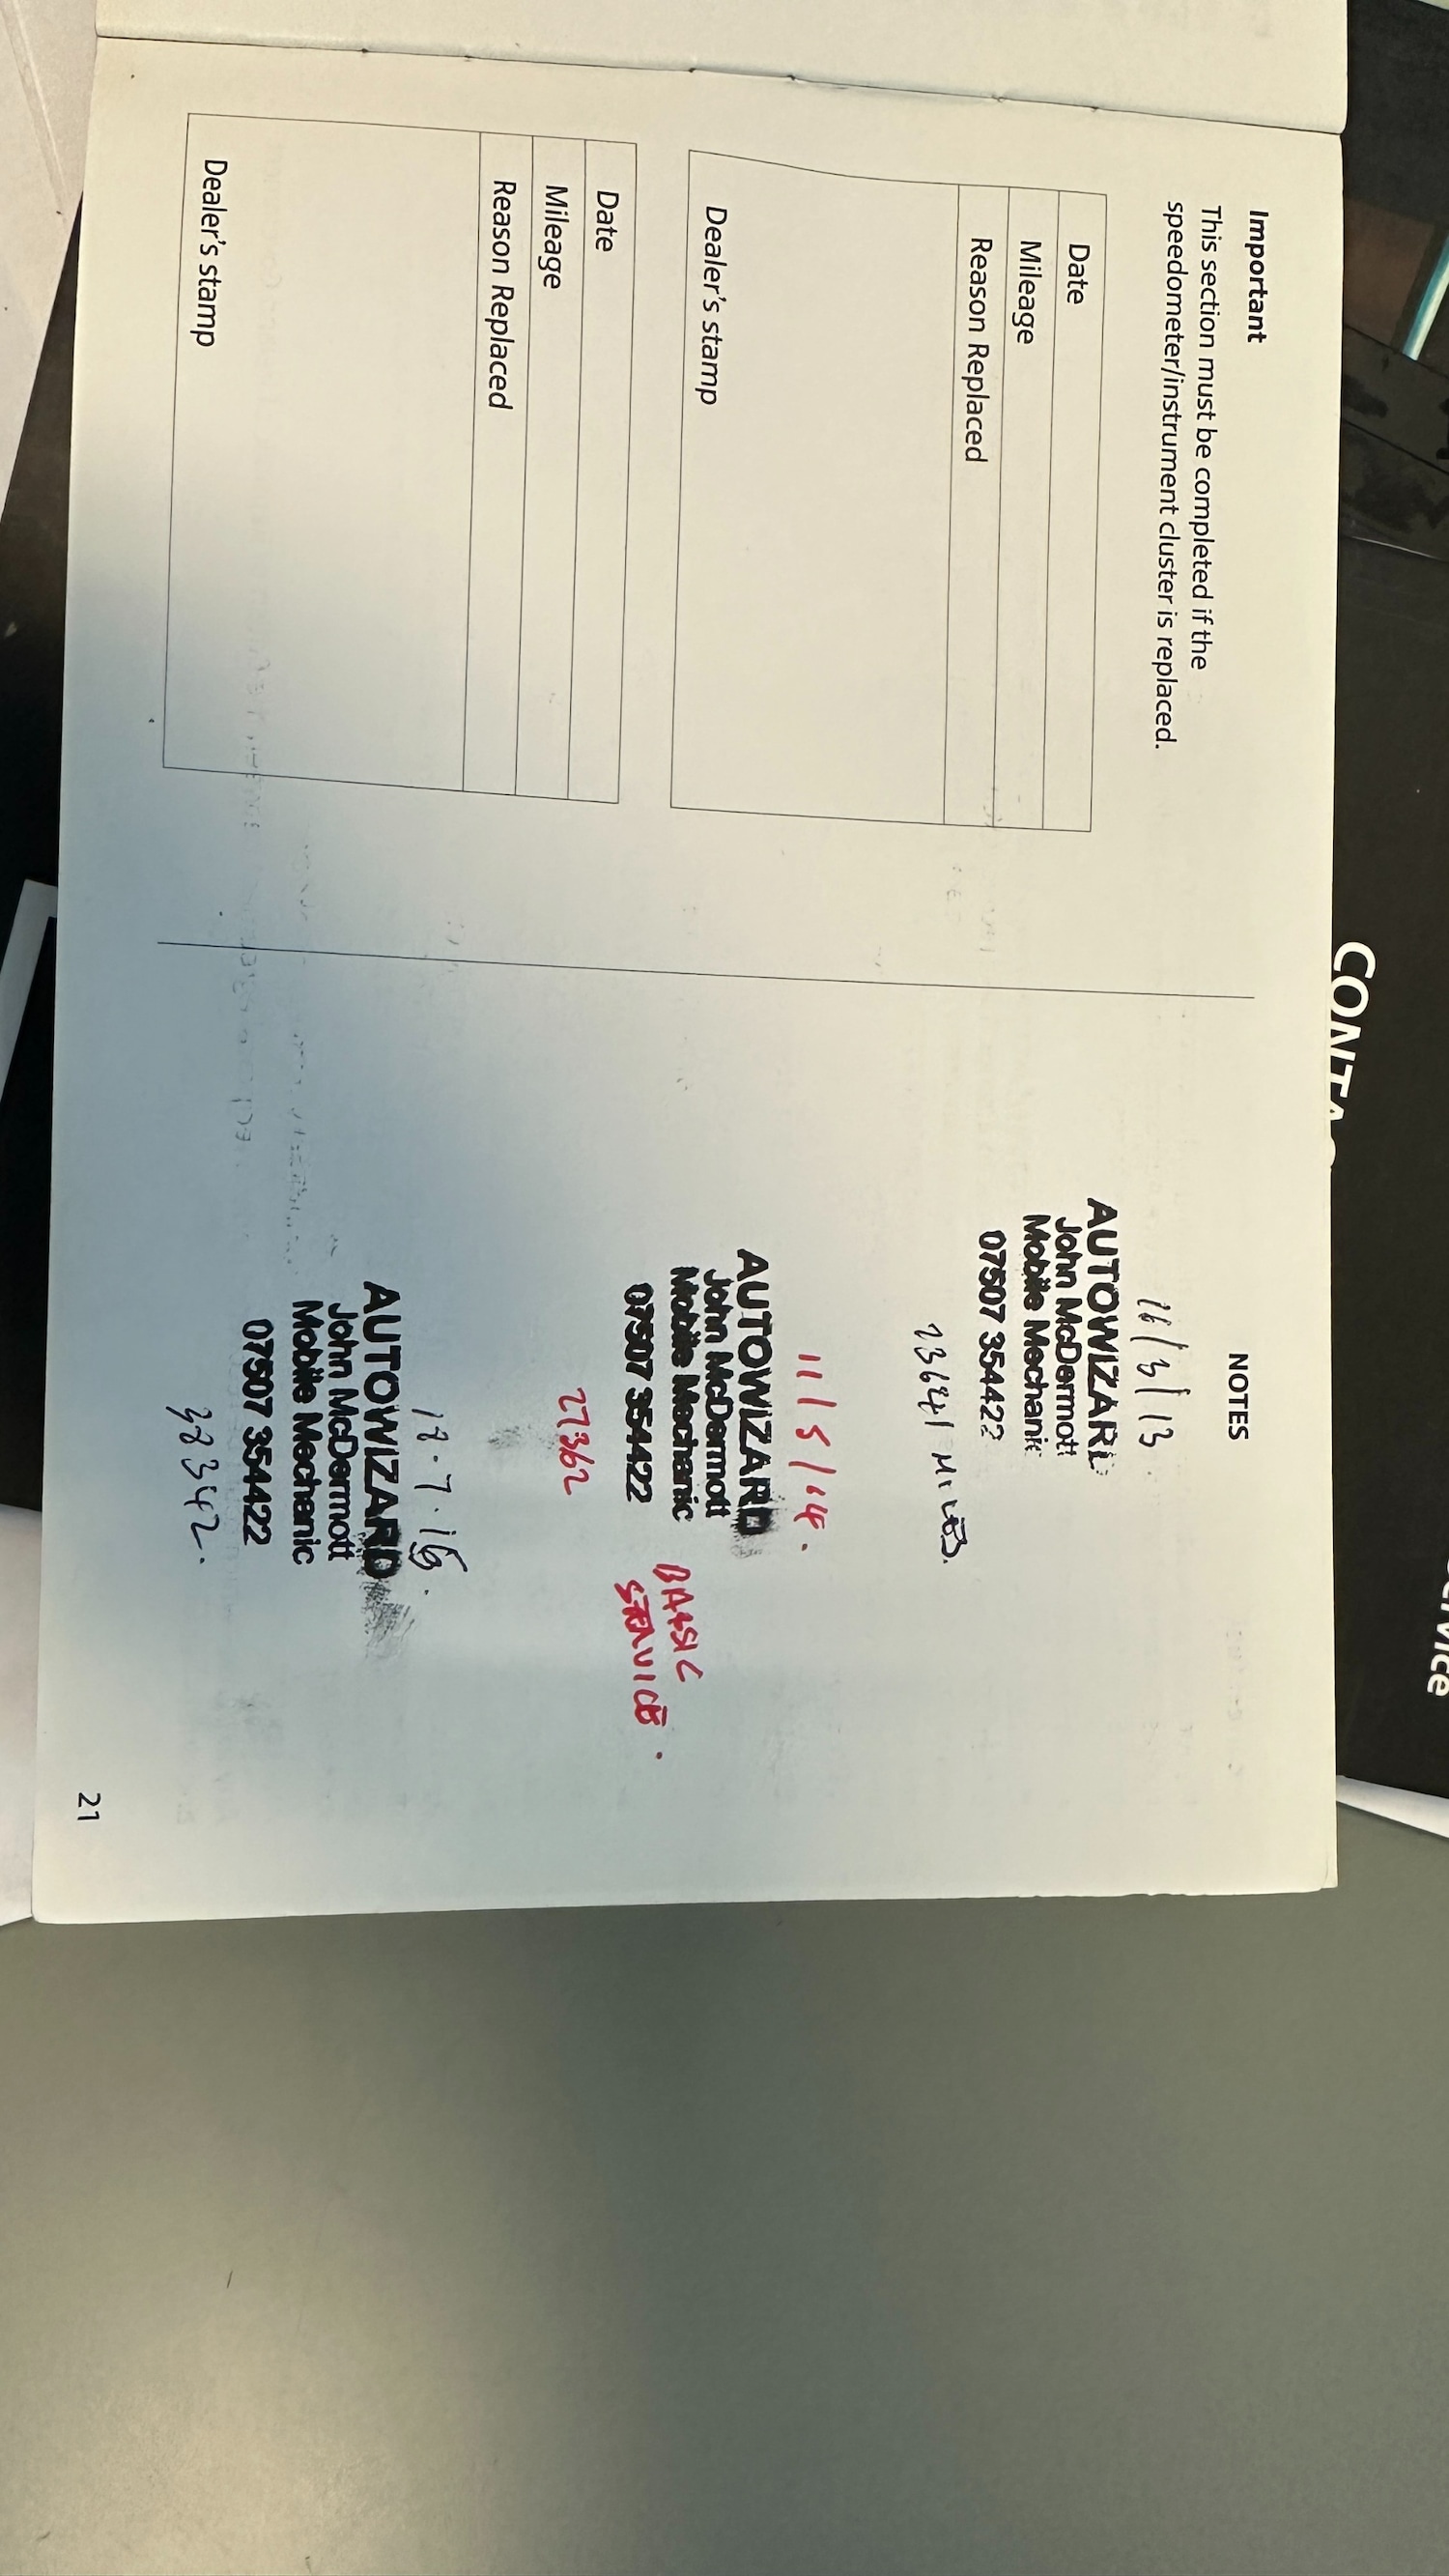 Important
This section must be completed if the
speedometer/instrument cluster is replaced.
Date
Mileage
Reason Replaced
Dealer's stamp
Date
Mileage
Reason Replaced
Dealer's stamp
NOTES
16/3/13.
AUTOWIZARD
John McDermott
Mobile Mechanic
07507 354422
23641 MILES.
11/5/14.
AUTOWIZARD
John McDermott
Mobile Mechanic
07507 354422
BASIC
SERVICE.
27362
AUTOWIZARD
John McDermott
Mobile Mechanic
07507 354422
38342.
21